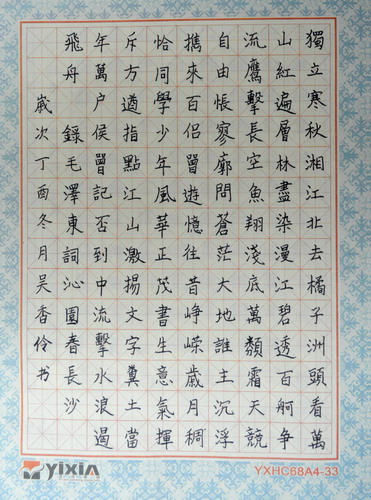 獨立寒秋湘江北去橘子洲頭看萬
山紅遍層林盡染漫江碧透百舸爭
流鷹擊長空魚翔淺底萬類霜天競
自由悵寥廓問蒼茫大地誰主沉浮
攜來百侶曾遊憶往昔崢嶸歲月稠
恰同學少年風華正茂書生意氣揮
斥方遒指點江山激揚文字糞土當
年萬户侯曾記否到中流擊水浪遏
飛舟 錄毛澤東詞沁園春長沙
嵗次丁酉冬月吴香伶书
YIXIA
YXHC68A4-33